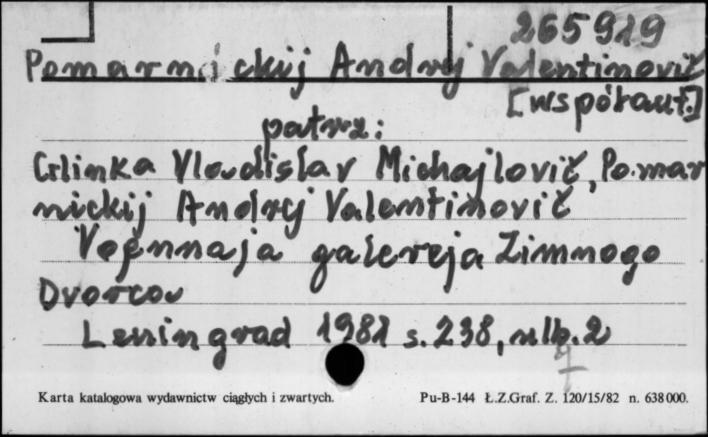 265919
Pomarnickij Andrej Valentinovič
[współaut.]
patrz:
Glinka Vladislav Michajlovič, Pomar
nickij Andrej Valentinovič
Voennaja galereja Zimnogo
Dvorca
Leningrad 1981 s. 238, nlb. 2
Karta katalogowa wydawnictw ciągłych i zwartych. Pu-B-144 Ł.Z.Graf. Z. 120/15/82 n. 638000.